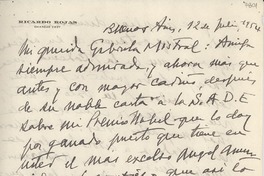 RICARDO ROJAS
Buenos Aires, 12 de Julio, 1954
Mi querida Gabriela Mistral: Amiga
siempre admirada, y ahora más que
antes y con mayor cariño después
de su noble carta a la S.A.D.E
sobre mi Premio Nobel que lo doy
por ganado puesto que tiene en
usted el mas excelso Angel
y que así lo